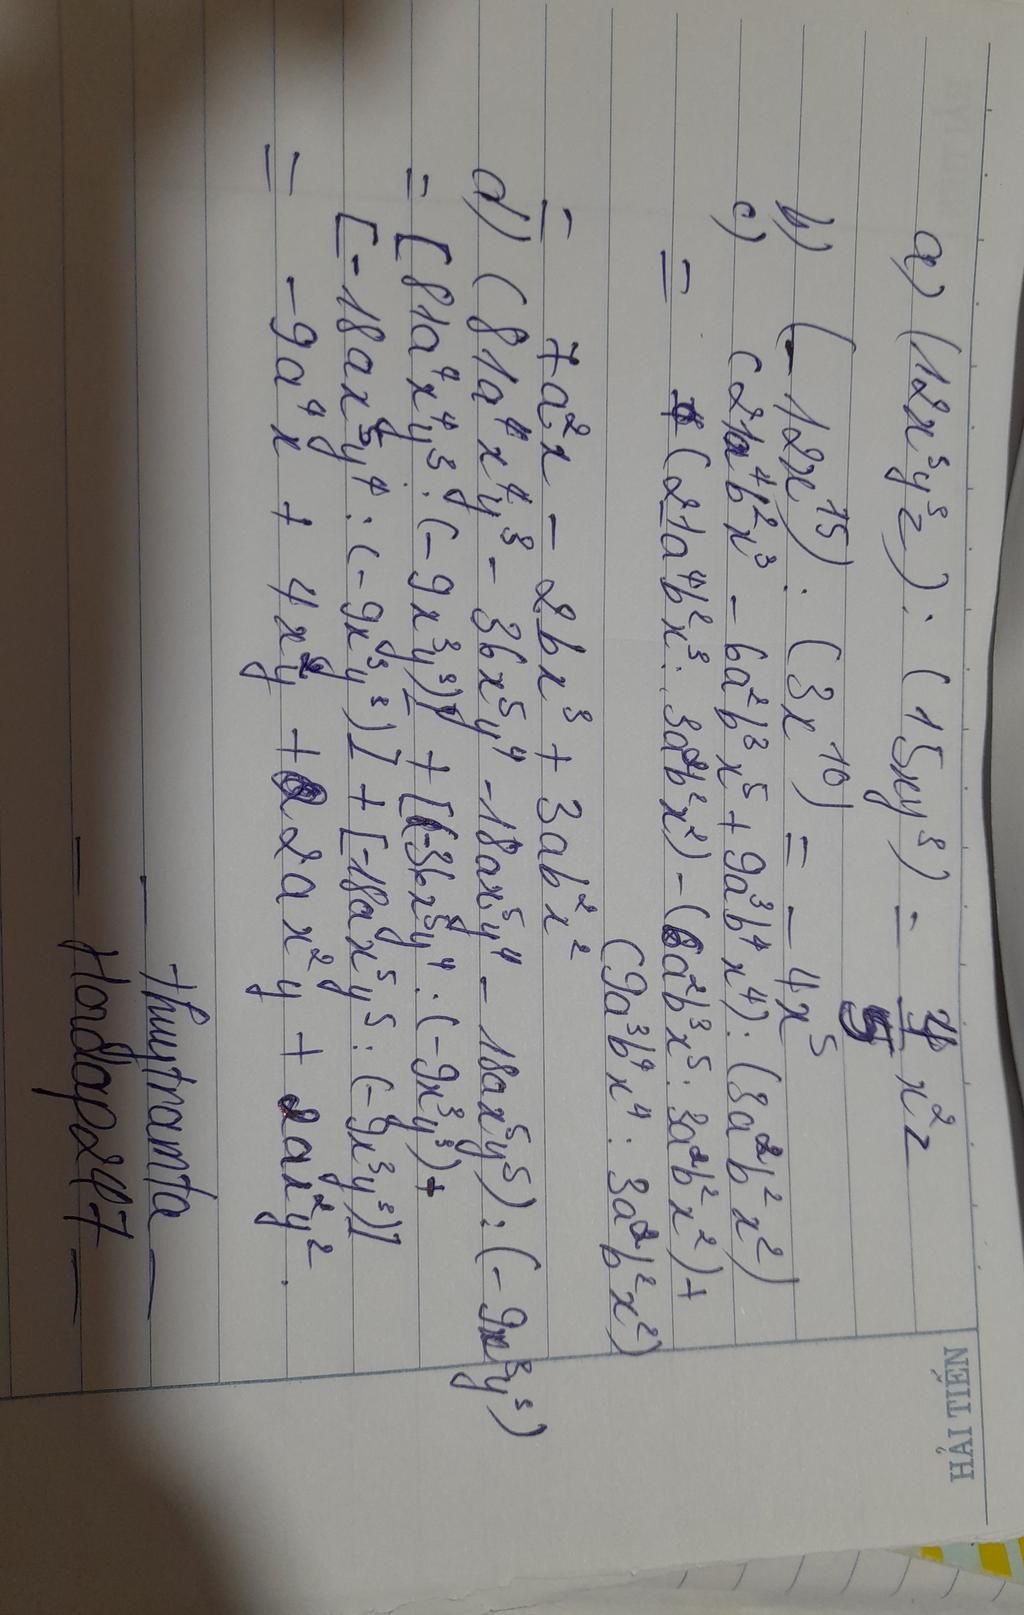 HẢI TIẾN
a) (12x³y³z) : (15xy³) = 4/5 x²z
b) (-12x¹⁵) : (3x¹⁰) = -4x⁵
c) (21a⁴b²x³ - 6a²b³x⁵ + 9a³b⁴x⁴) : (3a²b²x²)
= (21a⁴b²x³ : 3a²b²x²) - (6a²b³x⁵ : 3a²b²x²) +
(9a³b⁴x⁴ : 3a²b²x²)
= 7a²x - 2bx³ + 3ab²x²
d) (81a⁴x⁴y³ - 36x⁵y⁴ - 18ax⁵y⁴ - 18ax⁵y⁵) : (-9x³y³)
= [81a⁴x⁴y³ : (-9x³y³)] + [(-36x⁵y⁴ : (-9x³y³) +
[-18ax⁵y⁴ : (-9x³y³)] + [-18ax⁵y⁵ : (-9x³y³)]
= -9a⁴x + 4x²y + 2ax²y + 2ax²y².
- thuytramta -
- Hordap247 -